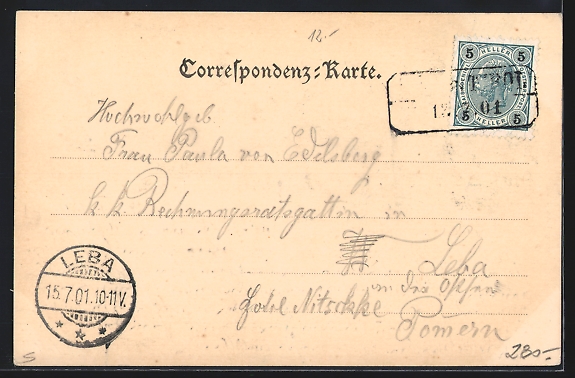 12.-
Correspondenz-Karte.
5 HELLER 5
01
5 HELLER 5
Hochwohlgeb
Frau Paula von Edelsberg
k k Rechnungsratsgattin in
Leba
in der Ostsee
Hotel Nitschke
Pomern
LEBA
15.7.01.10-11V.
280.-
S